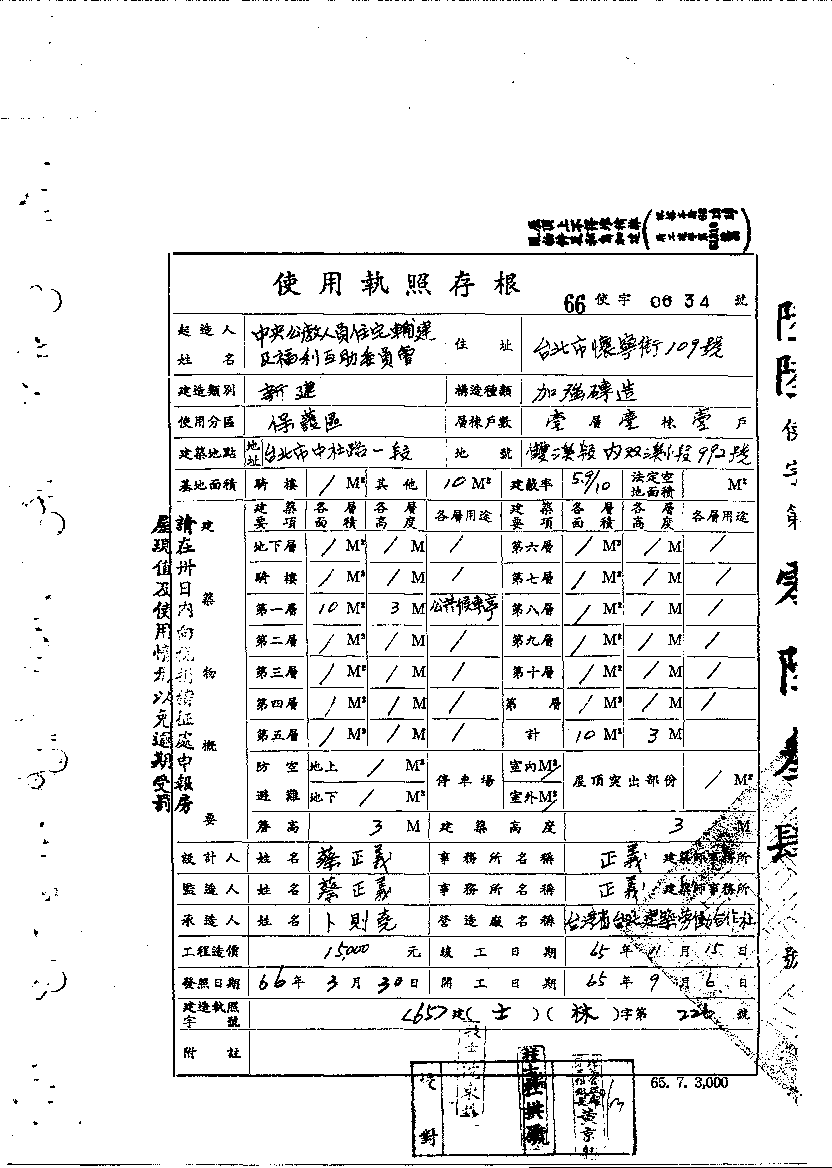 使用執照存根
66 使字 0634 號
起造人姓名 中央公教人員住宅輔建及福利互助委員會 住址 台北市懷寧街109號
建造類別 新建 構造種類 加強磚造
使用分區 保護區 層棟戶數 壹層壹棟壹戶
建築地點 地址 台北市中社路一段 地號 雙溪段內双溪小段992號
基地面積 騎樓 / M² 其他 10 M² 建蔽率 5.9/10 法定空地面積 M²
建築物概要
建築要項 各層面積 各層高度 各層用途 建築要項 各層面積 各層高度 各層用途
地下層 / M² / M / 第六層 / M² / M /
騎樓 / M² / M / 第七層 / M² / M /
第一層 10 M² 3 M 公共候車亭 第八層 / M² / M /
第二層 / M² / M / 第九層 / M² / M /
第三層 / M² / M / 第十層 / M² / M /
第四層 / M² / M / 第 層 / M² / M /
第五層 / M² / M / 計 10 M² 3 M
防空避難 地上 / M² 地下 / M² 停車場 室內M² / 室外M² / 屋頂突出部份 / M²
簷高 3 M 建築高度 3 M
設計人 姓名 蔡正義 事務所名稱 正義 建築師事務所
監造人 姓名 蔡正義 事務所名稱 正義 建築師事務所
承造人 姓名 卜則堯 營造廠名稱 台灣省台北建築勞働合作社
工程造價 15000 元 竣工日期 65年11月15日
發照日期 66年3月30日 開工日期 65年9月6日
建造執照字號 65建(士)(林)字第 226 號
附註
65. 7. 3,000
請在卅日內向稅捐稽征處申報房
屋現值及使用情形以免逾期受罰
使字第零陸叁肆號
對